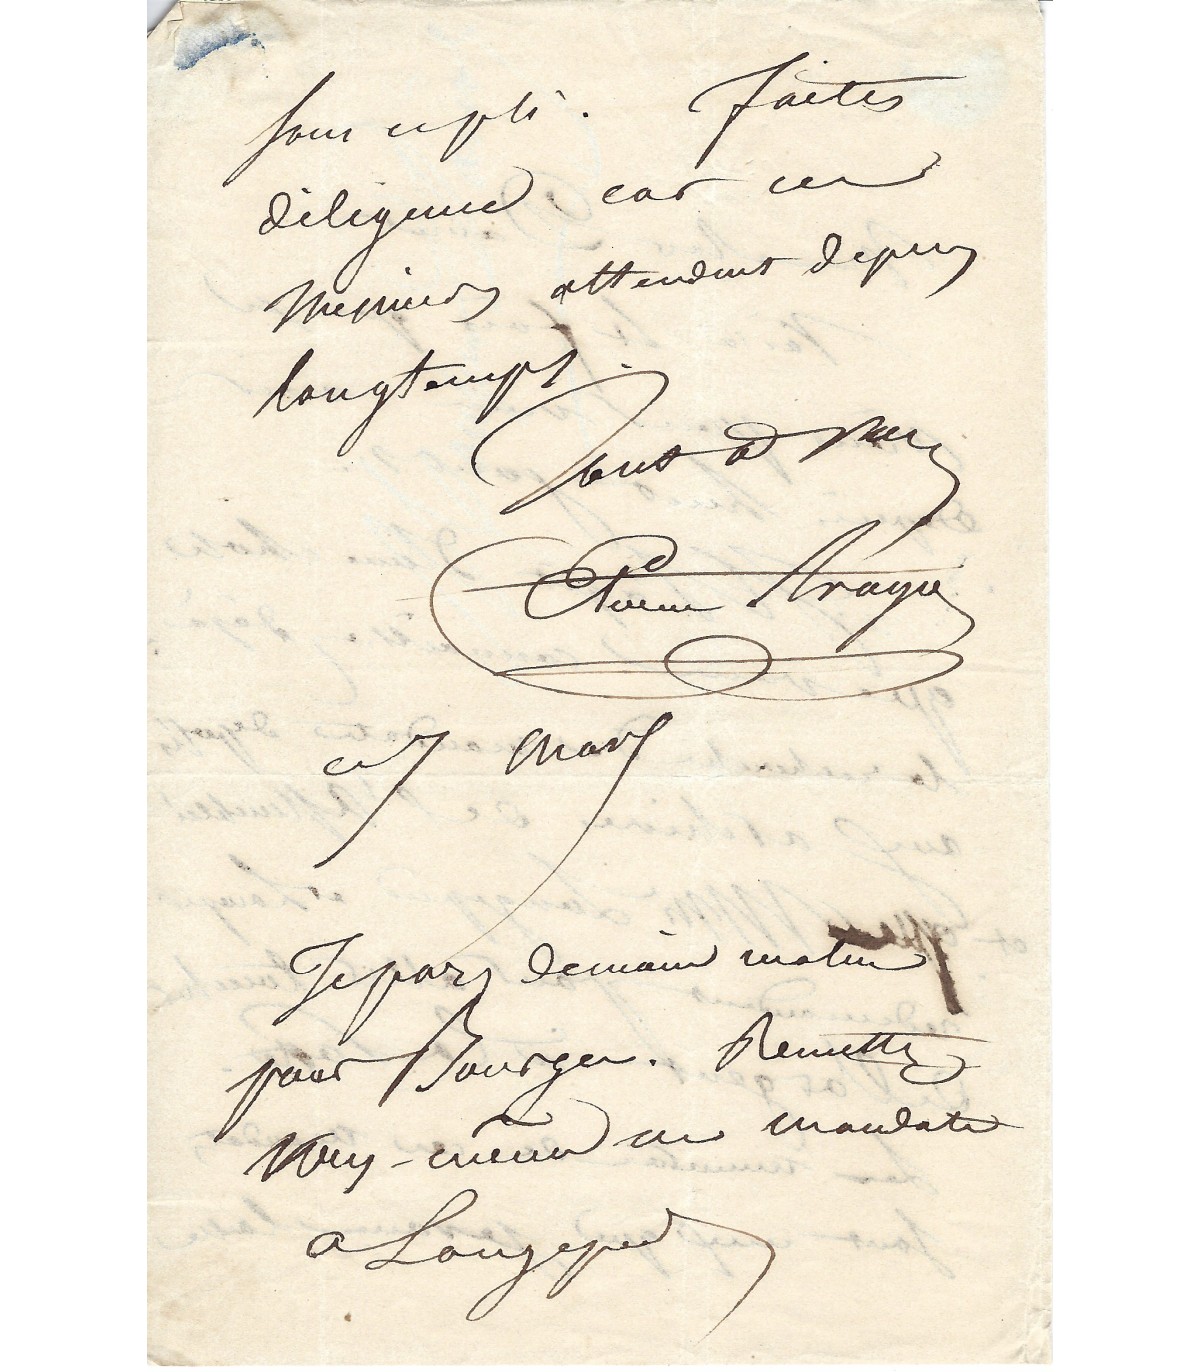 sous ce pli. Faites
diligence car ces
Messieurs attendent depuis
longtemps.
Tout à vous
Etienne Arago
ce 7 mars
Je pars demain matin
pour Bourges. Remettez
vous-même ces mandats
a Longepied